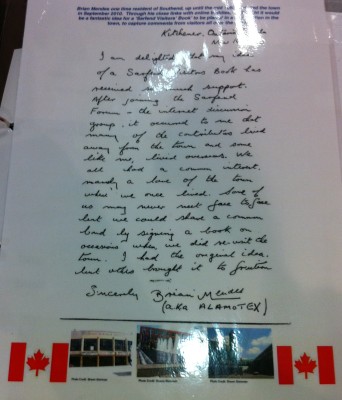 Brian Mendes one time resident of Southend, up until the mid
in September 2010. Through his close links with online
be a fantastic idea for a 'Visitors' Book' to be placed in
to capture comments from visitors all over the
Kitchener, Ontario
I am delighted that my idea
of a Visitors Book has
received so much support.
After joining the
Forum - the internet discussion
group, it occurred to me that
many of the contributors lived
away from the town and some
like me, lived overseas. We
all had a common interest,
namely a love of the town
where we once lived. Some of
us may never meet face to face
but we could share a common
bond by signing a book on
occasions when we did re-visit the
town. I had the original idea,
but others brought it to fruition
Sincerely Brian Mendes
(aka ALAMOTEX)